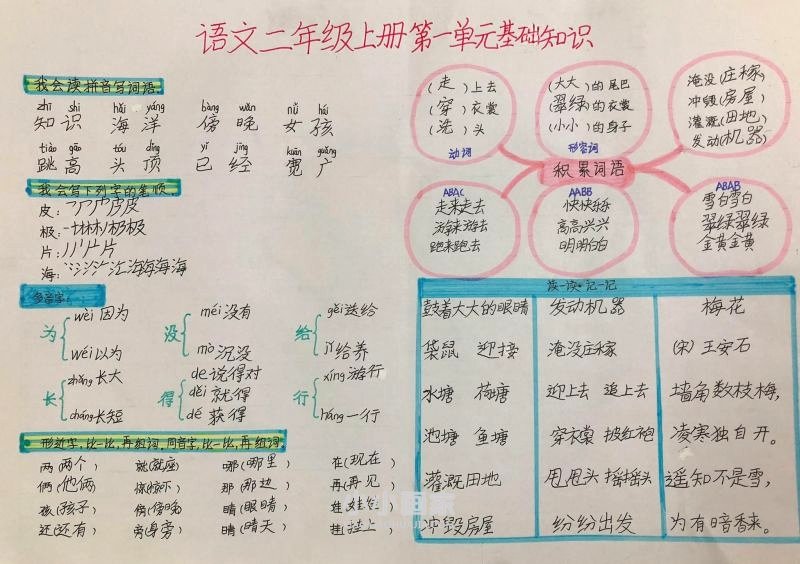 语文二年级上册第一单元基础知识
我会读拼音写词语
zhī shi hǎi yáng bàng wǎn nǚ hái
知识 海洋 傍晚 女孩
tiào gāo tóu dǐng yǐ jīng kuān guǎng
跳高 头顶 已经 宽广
我会写下列字的笔顺
皮:
极:
片:
海:
多音字:
为 wèi 因为
wéi 以为
没 méi 没有
mò 沉没
给 gěi 送给
jǐ 给养
长 zhǎng 长大
cháng 长短
得 de 说得对
děi 就得
dé 获得
行 xíng 游行
háng 一行
形近字,比一比,再组词.同音字,比一比,再组词.
两(两个) 就(就座) 哪(哪里) 在(现在)
俩(他俩) 那(那边) 再(再见)
孩(孩子) 傍(傍晚) 睛(眼睛) 娃
还(还有) 旁(身旁) 晴(晴天) 挂(挂上)
(走)上去
(穿)衣裳
(洗)头
动词
(大大)的尾巴
(翠绿)的衣裳
(小小)的身子
形容词
淹没(庄稼)
冲毁(房屋)
灌溉(田地)
发动(机器)
积累词语
ABAC
走来走去
游来游去
跑来跑去
AABB
快快乐乐
高高兴兴
明明白白
ABAB
雪白雪白
翠绿翠绿
金黄金黄
读一读·记一记
鼓着大大的眼睛 发动机器 梅花
袋鼠 迎接 淹没庄稼 (宋) 王安石
水塘 荷塘 迎上去 追上去 墙角数枝梅,
池塘 鱼塘 穿衣裳 披红袍 凌寒独自开。
灌溉田地 甩甩头 摇摇头 遥知不是雪,
冲毁房屋 纷纷出发 为有暗香来。